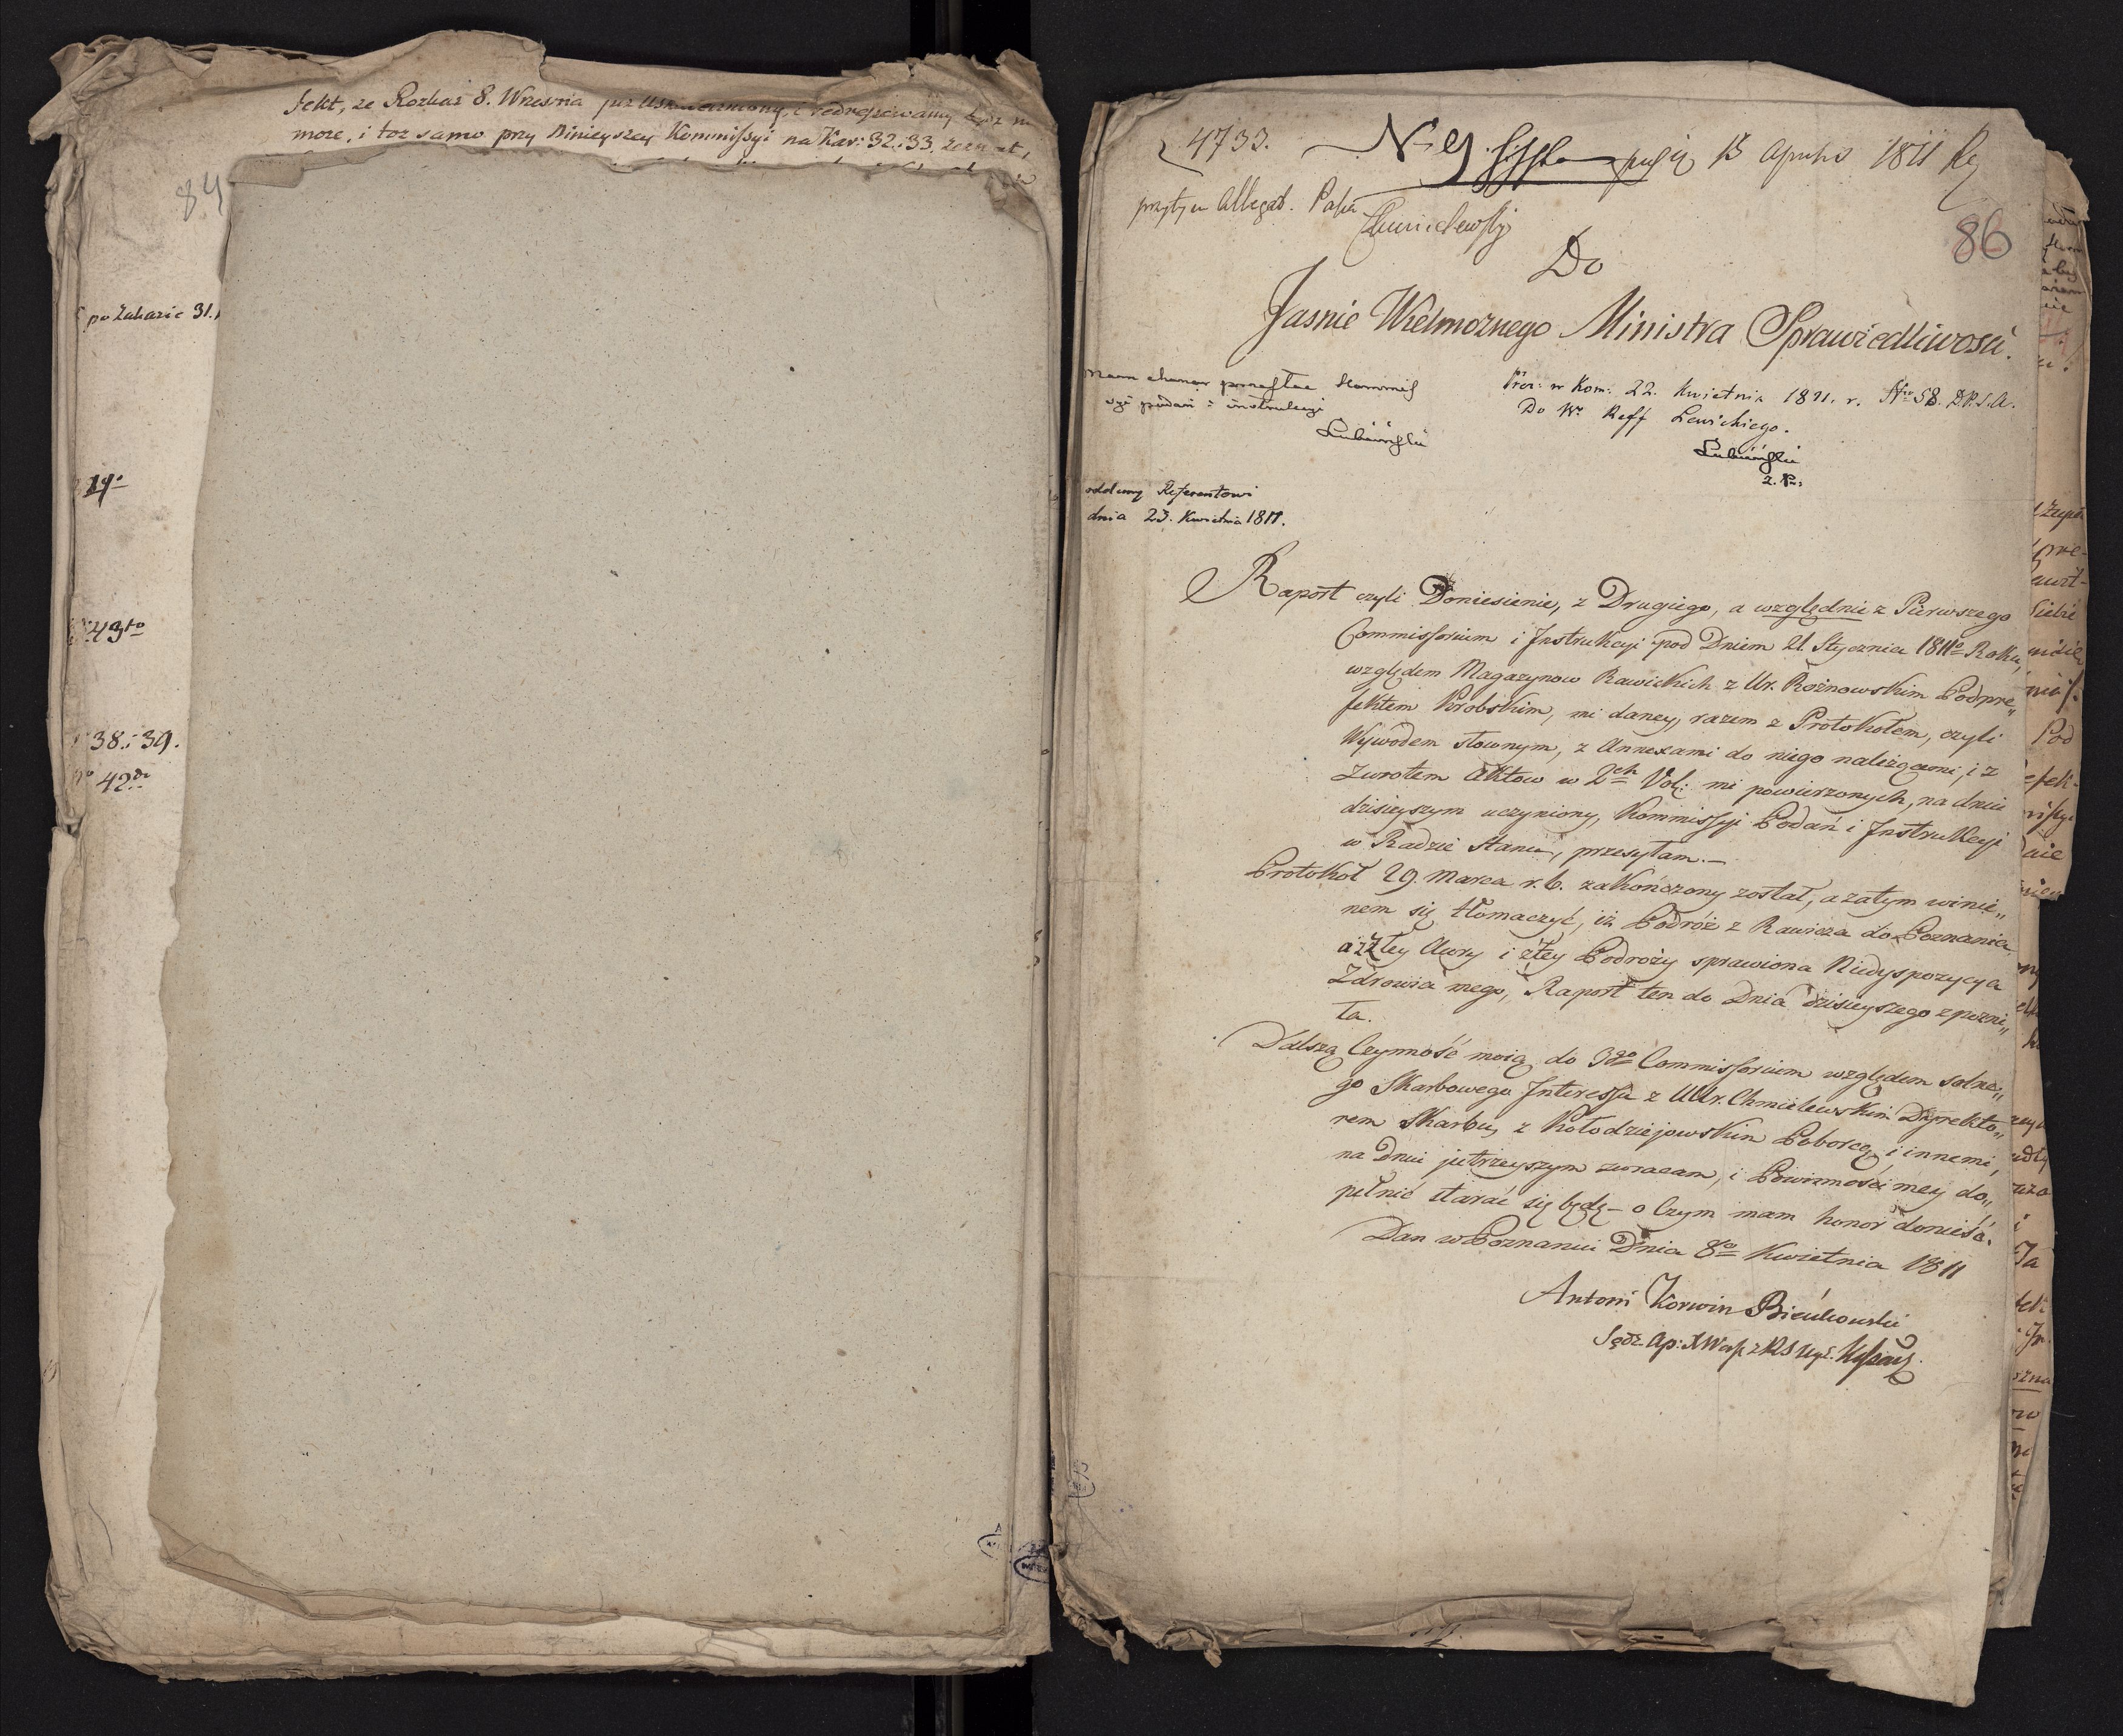 fekt, ze Rozkaz 8. Wrzesnia
moze, i toz samo przy Ninieyszey Kommissyi na Kar: 32.i 33. zeznał,
84
po Zakazie 31.
19.
43to
38. i 39.
42do
4733. 13 1811
przytym Allegat.
Chmielewski
86
Do
Jasnie Wielmoznego Ministra Sprawiedliwosci.
Mam honor przesłać Kommis
syi podań i instrukcyi
Łubieński
Prez: w Kom: 22. Kwietnia 1811. r. Nro 58. D.P.I.A.
Do Wo Reff Lewickiego.
Łubieński
oddany Referentowi
dnia 23. Kwietnia 1811.
Raport czyli Doniesienie, z Drugiego, a względnie z Pierwszego
Commissorium i Instrukcyi pod Dniem 21. Stycznia 1811o Roku,
względem Magazynow Rawickich z Ur. Rożnowskim Podpre„
fektem Krobskim, mi daney, razem z Protokołem, czyli
Wywodem słownym, z Annexami do niego należącemi, i z
Zwrotem Aktow w 2ch Vol: mi powierzonych, na dniu
dzisieyszym uczyniony, Kommissyi Podań i Instrukcyi
w Radzie Stanu, przesyłam.—
Protokoł 29. Marca r. b. zakończony został, a zatym winie„
nem się tłomaczyć, iż Podróż z Rawicza do Poznania
a z złey Aury i złey Podroży sprawiona Niedyspozycya
Zdrowia mego, Raport ten do Dnia dzisieyszego zpozni„
ła.
Dalszą Czynność moią do 3go Commissorium względem solne„
go Skarbowego Interessa z Ur. Chmielewskim Dyrekto„
rem Skarbu, z Kołodziejowskim Poborcą i innemi,
na Dniu jutrzeyszym zwracam, i Powinności mey do„
pełnić starać się będę – o Czym mam honor donieść.
Dan w Poznaniu Dnia 8o Kwietnia 1811
Antoni Korwin Bieńkowski
Sędz. Ap: X Wa